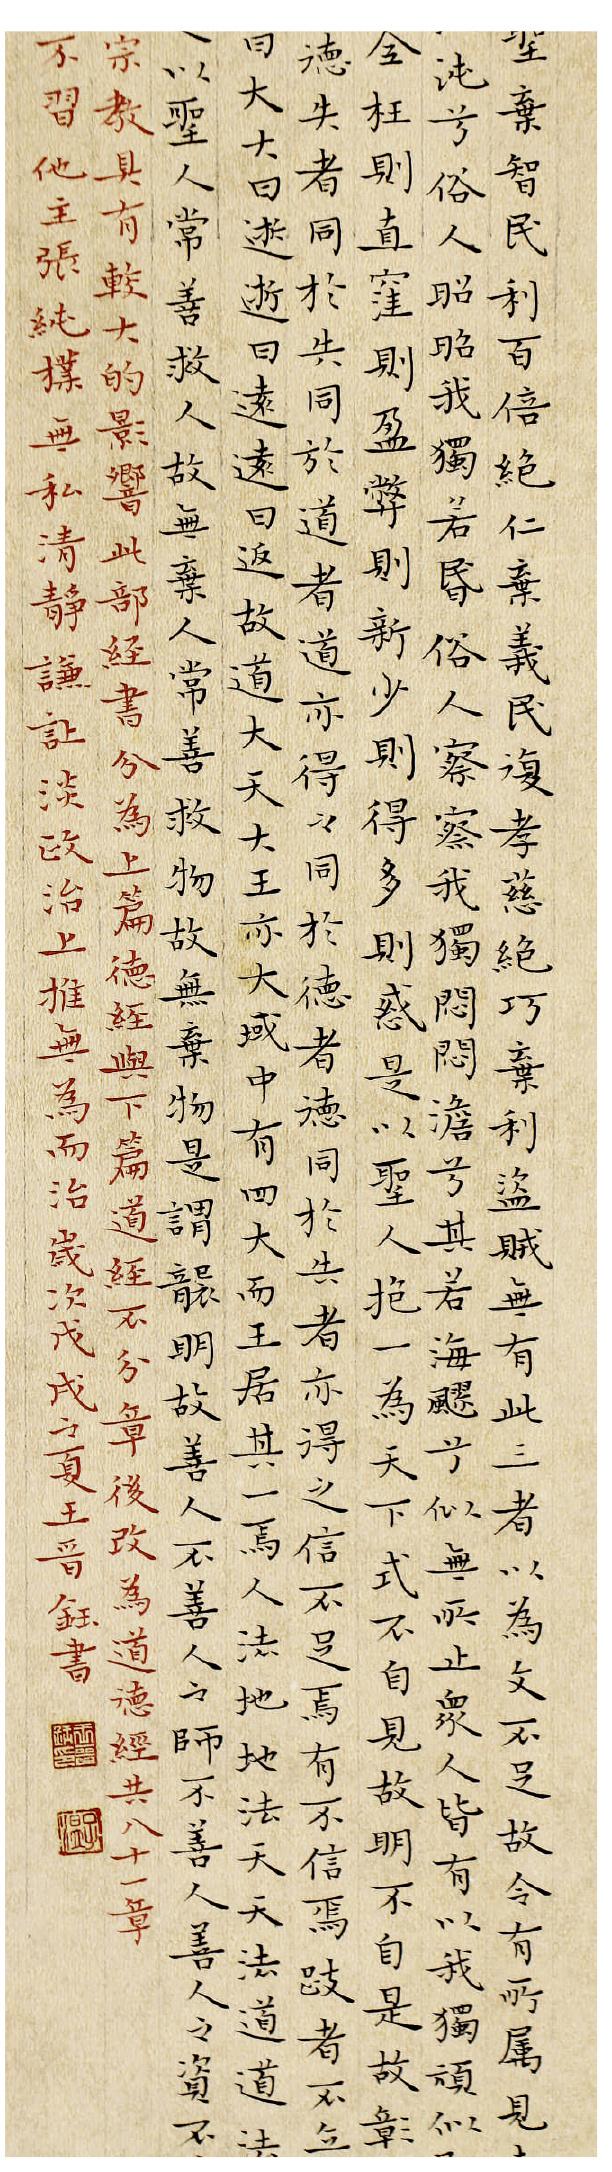 聖棄智民利百倍絕仁棄義民復孝慈絕巧棄利盜賊無有此三者以為文不足故令有所属見
沌兮俗人昭昭我獨若昏俗人察察我獨悶悶澹兮其若海飂兮似無所止眾人皆有以我獨頑似
全枉則直窪則盈弊則新少則得多則惑是以聖人抱一為天下式不自見故明不自是故彰
德失者同於失同於道者道亦得之同於德者德同於失者亦得之信不足焉有不信焉跂者不立
曰大大曰逝逝曰遠遠曰返故道大天大王亦大域中有四大而王居其一焉人法地地法天天法道道法
以聖人常善救人故無棄人常善救物故無棄物是謂襲明故善人不善人之師不善人善人之資不
宗教具有較大的影響此部経書分為上篇德経與下篇道経不分章後改為道德經共八十一章
不習他主張純樸無私清靜謙讓淡政治上推無為而治嵗次戊戌之夏王晉鈺書